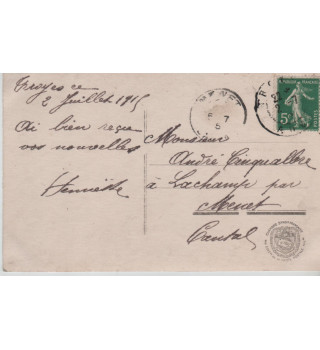 Troyes ce
2 Juillet 1915
Ai bien reçu
vos nouvelles
Henriette
Monsieur
André Cinqualbre
à Lachamp par
Menet
Cantal
MENET
6 7
5
5c